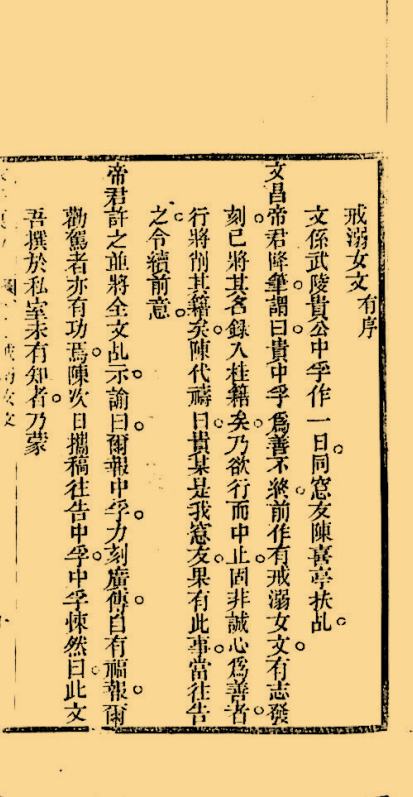 戒溺女文有序
文係武陵貴公中孚作一日同窓友陳喜亭扶乩。
文昌帝君降筆謂曰貴中孚爲善不終前作有戒溺女文。有志發
刻。已將其名錄入桂籍矣。乃欲行而中止。固非誠心爲善者。
行將削其籍矣。陳代禱曰。貴某是我窓友。果有此事。當往告
之。令續前意。
帝君許之並將全文乩示諭曰。爾報中孚。力刻廣傳。自有福報。爾
勸駕者亦有功焉。陳次日攜稿往告中孚。中孚悚然曰。此文
吾撰於私室未有知者。乃蒙
戒溺女文